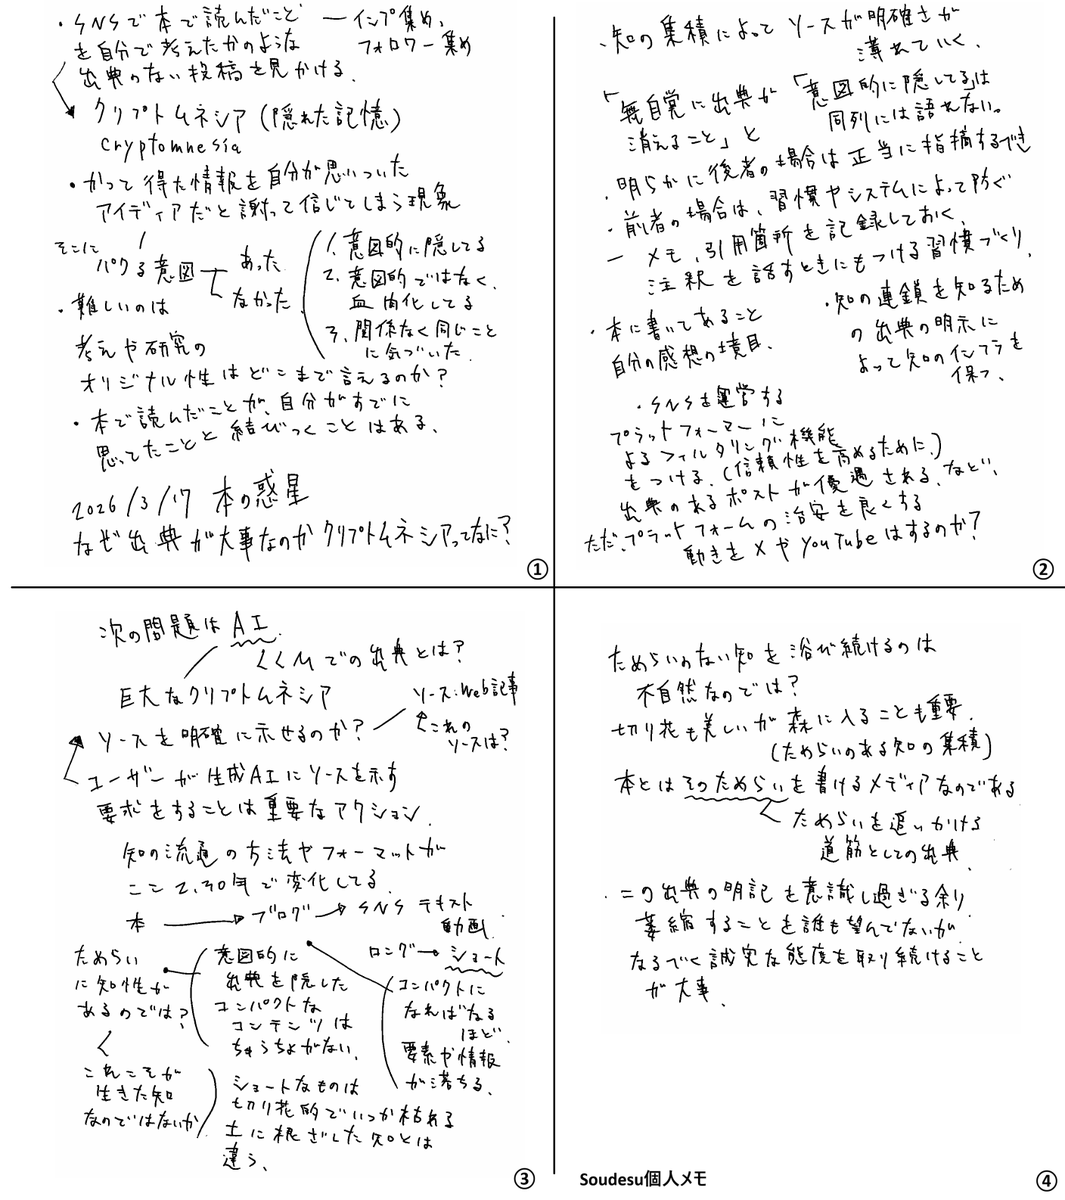 ・SNSで本で読んだこと ― インプ集め、
を自分で考えたかのような フォロワー集め
出典のない投稿を見かける。
クリプトムネシア(隠れた記憶)
cryptomnesia
・かつて得た情報を自分が思いついた
アイディアだと謝って信じてしまう現象
そこに
パクる意図
あった
なかった
1. 意図的に隠してる
2. 意図的ではなく、
血肉化してる
3. 関係なく同じこと
に気づいた。
・難しいのは
考えや研究の
オリジナル性はどこまで言えるのか?
・本で読んだことが、自分がすでに
思ってたことと結びつくことはある、
2026/3/17 本の惑星
なぜ出典が大事なのかクリプトムネシアってなに?
①
・知の集積によってソースが明確さが
薄れていく、
「無自覚に出典が
消えること」と
「意図的に隠してる」は
同列には語れない。
・明らかに後者の場合は正当に指摘するべき
・前者の場合は、習慣やシステムによって防ぐ
― メモ、引用箇所を記録しておく、
注釈を話すときにもつける習慣づくり、
・本に書いてあること
自分の感想の境目、
・知の連鎖を知るため
の出典の明示に
よって知のインフラを
保つ、
・SNSを運営する
プラットフォーマーに
よるフィルタリング機能
をつける、(信頼性を高めるために)
出典のあるポストが優遇される、など、
ただ、プラットフォームの治安を良くする
動きをXやYouTubeはするのか?
②
次の問題はAI.
LLMでの出典とは?
巨大なクリプトムネシア
ソースを明確に示せるのか?
ソース:Web記事
これの
ソースは?
ユーザーが生成AIにソースを示す
要求をすることは重要なアクション、
知の流通の方法やフォーマットが
ここ2,30年で変化してる、
本 → ブログ → SNS テキスト
動画、
ロング → ショート
ためらい
に知性が
あるのでは?
これこそが
生きた知
なのではないか
意図的に
出典を隠した
コンパクトな
コンテンツは
ちゅうちょがない、
コンパクトに
なればなる
ほど、
要素や情報
が落ちる、
ショートなものは
切り花的でいつか枯れる
土に根ざした知とは
違う、
③
ためらいのない知を浴び続けるのは
不自然なのでは?
切り花も美しいが森に入ることも重要、
(ためらいのある知の集積)
本とはそのためらいを書けるメディアなのである
ためらいを追いかける
道筋としての出典、
・この出典の明記も意識し過ぎる余り
萎縮することを誰も望んでないが、
なるべく誠実な態度を取り続けること
が大事、
Soudesu個人メモ
④